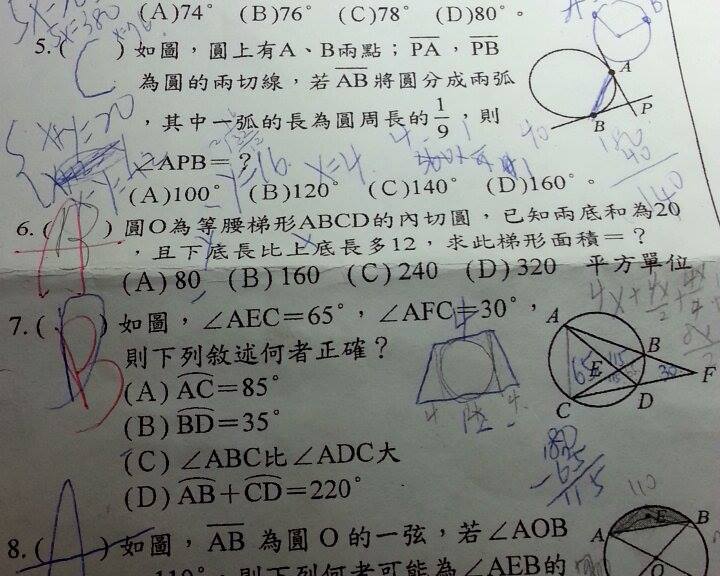 (A)74° (B)76° (C)78° (D)80°。
5.( C ) 如圖，圓上有A、B兩點；PA，PB
為圓的兩切線，若AB將圓分成兩弧
，其中一弧的長為圓周長的1/9，則
∠APB＝？
(A)100° (B)120° (C)140° (D)160°。
A
P
B
6.( B ) 圓O為等腰梯形ABCD的內切圓，已知兩底和為20
，且下底長比上底長多12，求此梯形面積＝？
(A) 80 (B) 160 (C) 240 (D) 320 平方單位
7.( B ) 如圖，∠AEC＝65°，∠AFC＝30°，
則下列敘述何者正確？
(A) AC＝85°
(B) BD＝35°
(C) ∠ABC比∠ADC大
(D) AB＋CD＝220°
A
B
E
F
C
D
65
115
30
4
4
12
4
180
-65
115
8.( A ) 如圖，AB 為圓 O 的一弦，若∠AOB
110°，則下列何者可能為∠AEB的
110
E
A
B
O
x=4
y=16
180
40
140